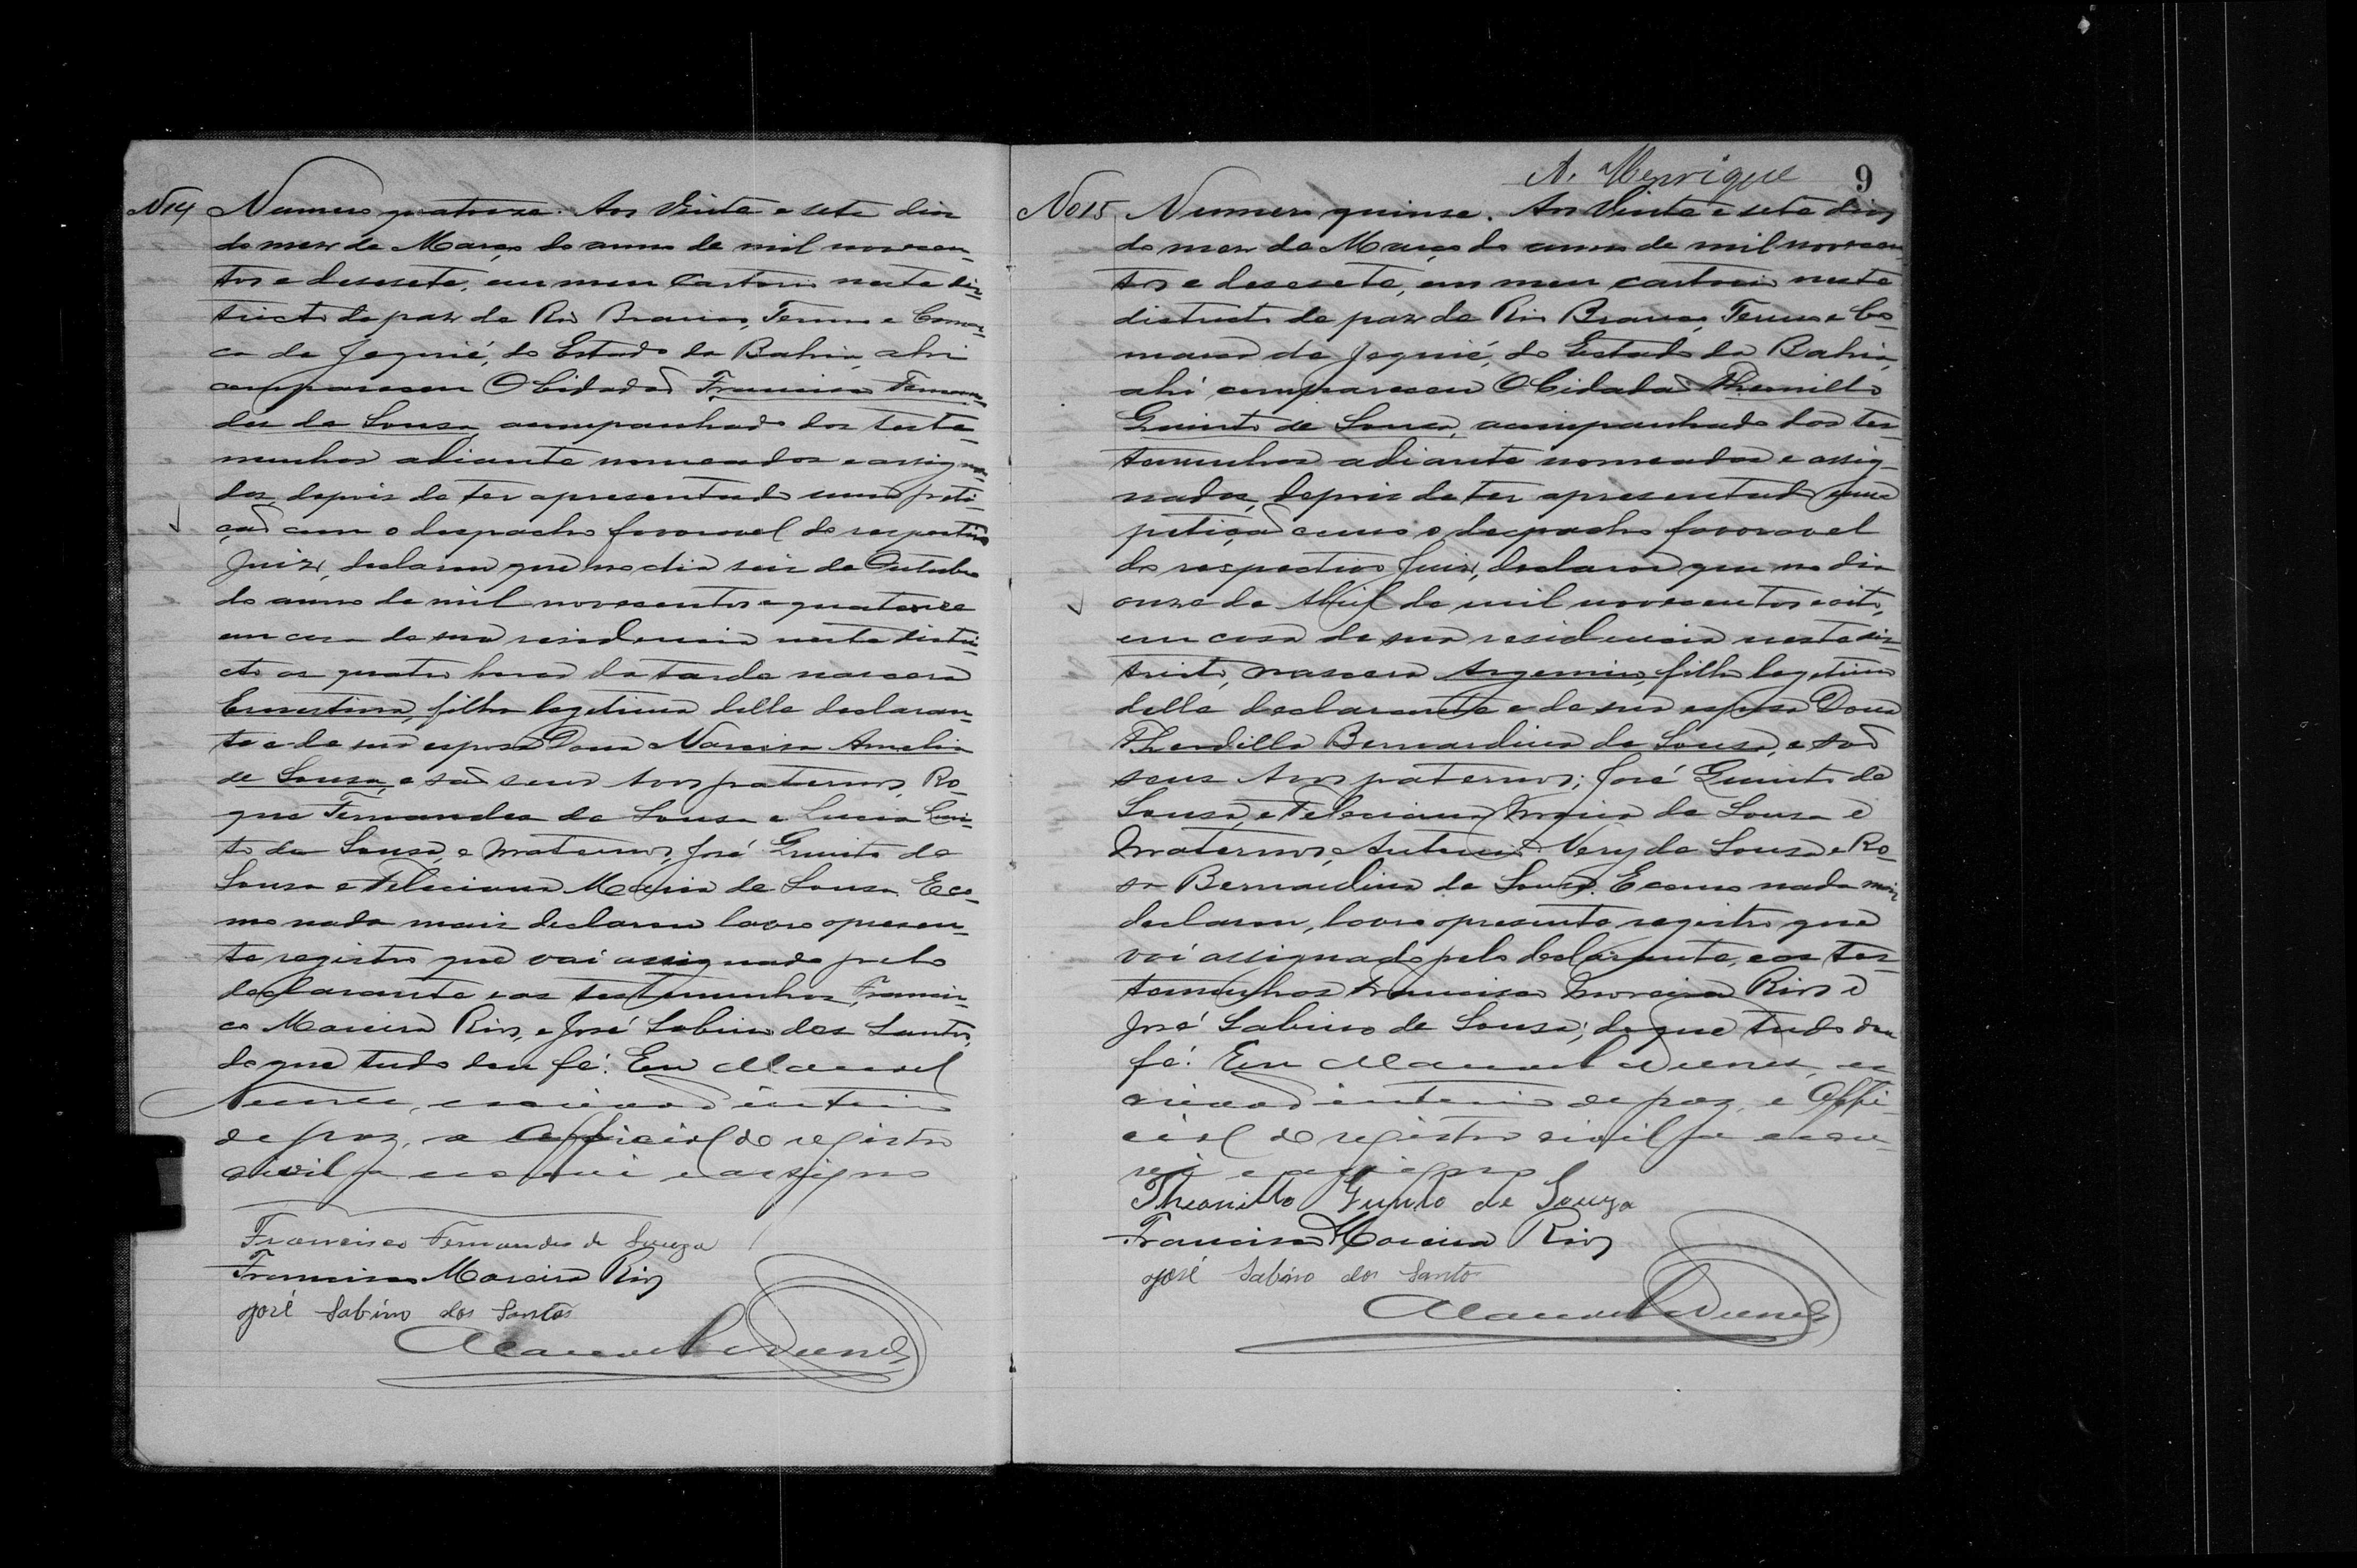 N14 Numero quatorze. Aos Vinte e sete dias
do mez de Março do anno de mil novecen-
tos e desesete, em meu Cartorio neste dis-
tricto de paz de Rio Branco, Termo e Comar-
ca de Jequié, do Estado da Bahia, ahi
compareceu O Cidadaõ Francisco Fernan-
des de Sousa, acompanhado das teste-
munhas adiante nomeadas e assigna-
das, depois de ter apresentado uma peti-
çaõ com o despacho favoravel do respectivo
Juiz, declarou que no dia seis de Outubro
do anno de mil novecentos e quatorze
em casa de sua residencia neste distri-
cto as quatro horas da tarde nascera
Ernestina, filha legetima delle declaran-
te e de sua esposa Dona Narcisa Amelia
de Sousa, e saõ seus Avos paternos, Ro-
que Fernandes de Sousa e Lucia
de Sousa, e maternos, José Quinto de
Sousa e Feleciana Maria de Sousa. E co-
mo nada mais declarou lavro o presen-
te registro que vai assignado pelo
declarante e as testemunhas, Francis-
co Moreira Rios, e José Sabino dos Santos,
do que tudo dou fé. Eu Manoel
Nunes, escrivaõ interino
de paz, e Official do registro
civil que escrevi e assigno
Francisco Fernandes de Souza
Francisco Moreira Rios
José Sabino dos Santos
Manoel Nunes
A. Henrique 9
No 15 Numero quinse. Aos Vinte e sete dias
do mez de Março do anno de mil novecen-
tos e desesete, em meu cartorio neste
districto de paz de Rio Branco, Termo e Co-
marca de Jequié, do Estado da Bahia,
ahi compareceu O Cidadaõ
Quinto de Sousa, acompanhado das tes-
temunhas adiante nomeadas e assig-
nadas, depois de ter apresentado uma
petiçaõ com o despacho favoravel
do respectivo Juiz, declarou que no dia
onze de Abril de mil novecentos e oito,
em casa de sua residencia neste dis-
tricto, nascera Argemiro, filho legetimo
delle declarante e de sua esposa Dona
Bernardina de Sousa, e saõ
seus Avos paternos; José Quinto de
Sousa, e Feleciana Maria de Sousa e
maternos, Antonio Nery de Sousa e Ro-
sa Bernardina de Sousa. E como nada mais
declarou, lavro o presente registro que
vai assignado pelo declarante, e as tes-
temunhas Francisco Moreira Rios e
José Sabino de Sousa; do que tudo dou
fé. Eu Manoel Nunes, es-
crivaõ interino de paz, e Offi-
cial do registro civil que escre-
vi e assigno
Quinto de Souza
Francisco Moreira Rios
José Sabino dos Santos
Manoel Nunes